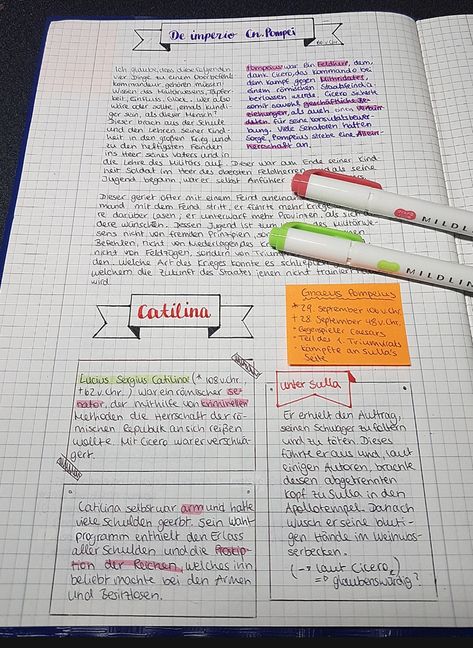 De imperio Cn. Pompei
66 v. Chr.
Ich glaube, dass diese folgenden
vier Dinge zu einem Oberbefehls
kommandeur gehören müssen:
Wissen des Militärwesens, Tapfer-
keit, Einfluss, Glück. Wer also
ist oder wäre jemals kundi-
ger sein, als dieser Mensch?
Dieser brach aus der Schule
und den Lehren seiner Kind-
heit in den großen Krieg und
zu den heftigsten Feinden
ins Heer seines Vaters und in
die Lehre des Militärs auf. Dieser war am Ende seiner Kind
heit Soldat im Heer des obersten Feldherren und als seine
Jugend begann, war er selbst Anführer
Pompeius war ein Feldherr, dem,
dank Cicero, das Kommando be
dem Kampf gegen Mithridates,
einem römischen Staatsfeind, ü-
berlassen wurde. Cicero sicherte
somit sowohl geschäftliche Be-
ziehungen, als auch einen Verbün-
deten für seine Konsulatsbewer-
bung. Viele Senatoren hatten
Sorge, Pompeius strebe eine Allein-
herrschaft an.
Dieser geriet öfter mit einem Feind aneinander
mand mit dem Feind stritt, er führte mehr Kriege
re darüber lasen, er unterwarf mehr Provinzen, als sich
dere wünschen. Dessen Jugend ist zum
sens nicht von fremden Prinzipien, so
Befehlen, nicht von Niederlagen des K
nicht von Feldzügen, sondern von Triump
den. Welche Art des Krieges konnte es schließlich
welchem die Zukunft des Staates jenen nicht trainiert
wird.
MILDLIN
MILDLIN
Catilina
Gnaeus Pompeius
* 29. September 106 v. Chr.
+ 28 September 48 v. Chr.
- Gegenspieler Caesars
- Teil des 1. Triumvirats
- kämpfte an Sulla's
Seite
Lucius Sergius Catilina (* 108 v. Chr.
+ 62 v. Chr.) war ein römischer Se-
nator, der mithilfe von kriminellen
Methoden die Herrschaft der rö-
mischen Republik an sich reißen
wollte. Mit Cicero war er verschwä-
gert.
Catilina selbst war arm und hatte
viele Schulden geerbt. Sein Wahl-
programm enthielt den Erlass
aller Schulden und die Proskrip-
tion der Reichen, welches ihn
beliebt machte bei den Armen
und Besitzlosen.
unter Sulla
Er erhielt den Auftrag,
seinen Schwager zu foltern
und zu töten. Dieses
führte er aus und, laut
einigen Autoren, brachte
dessen abgetrennten
Kopf zu Sulla in den
Apollotempel. Danach
wusch er seine bluti-
gen Hände im Weihwas-
serbecken.
(→ laut Cicero,
⇒ glaubenswürdig?